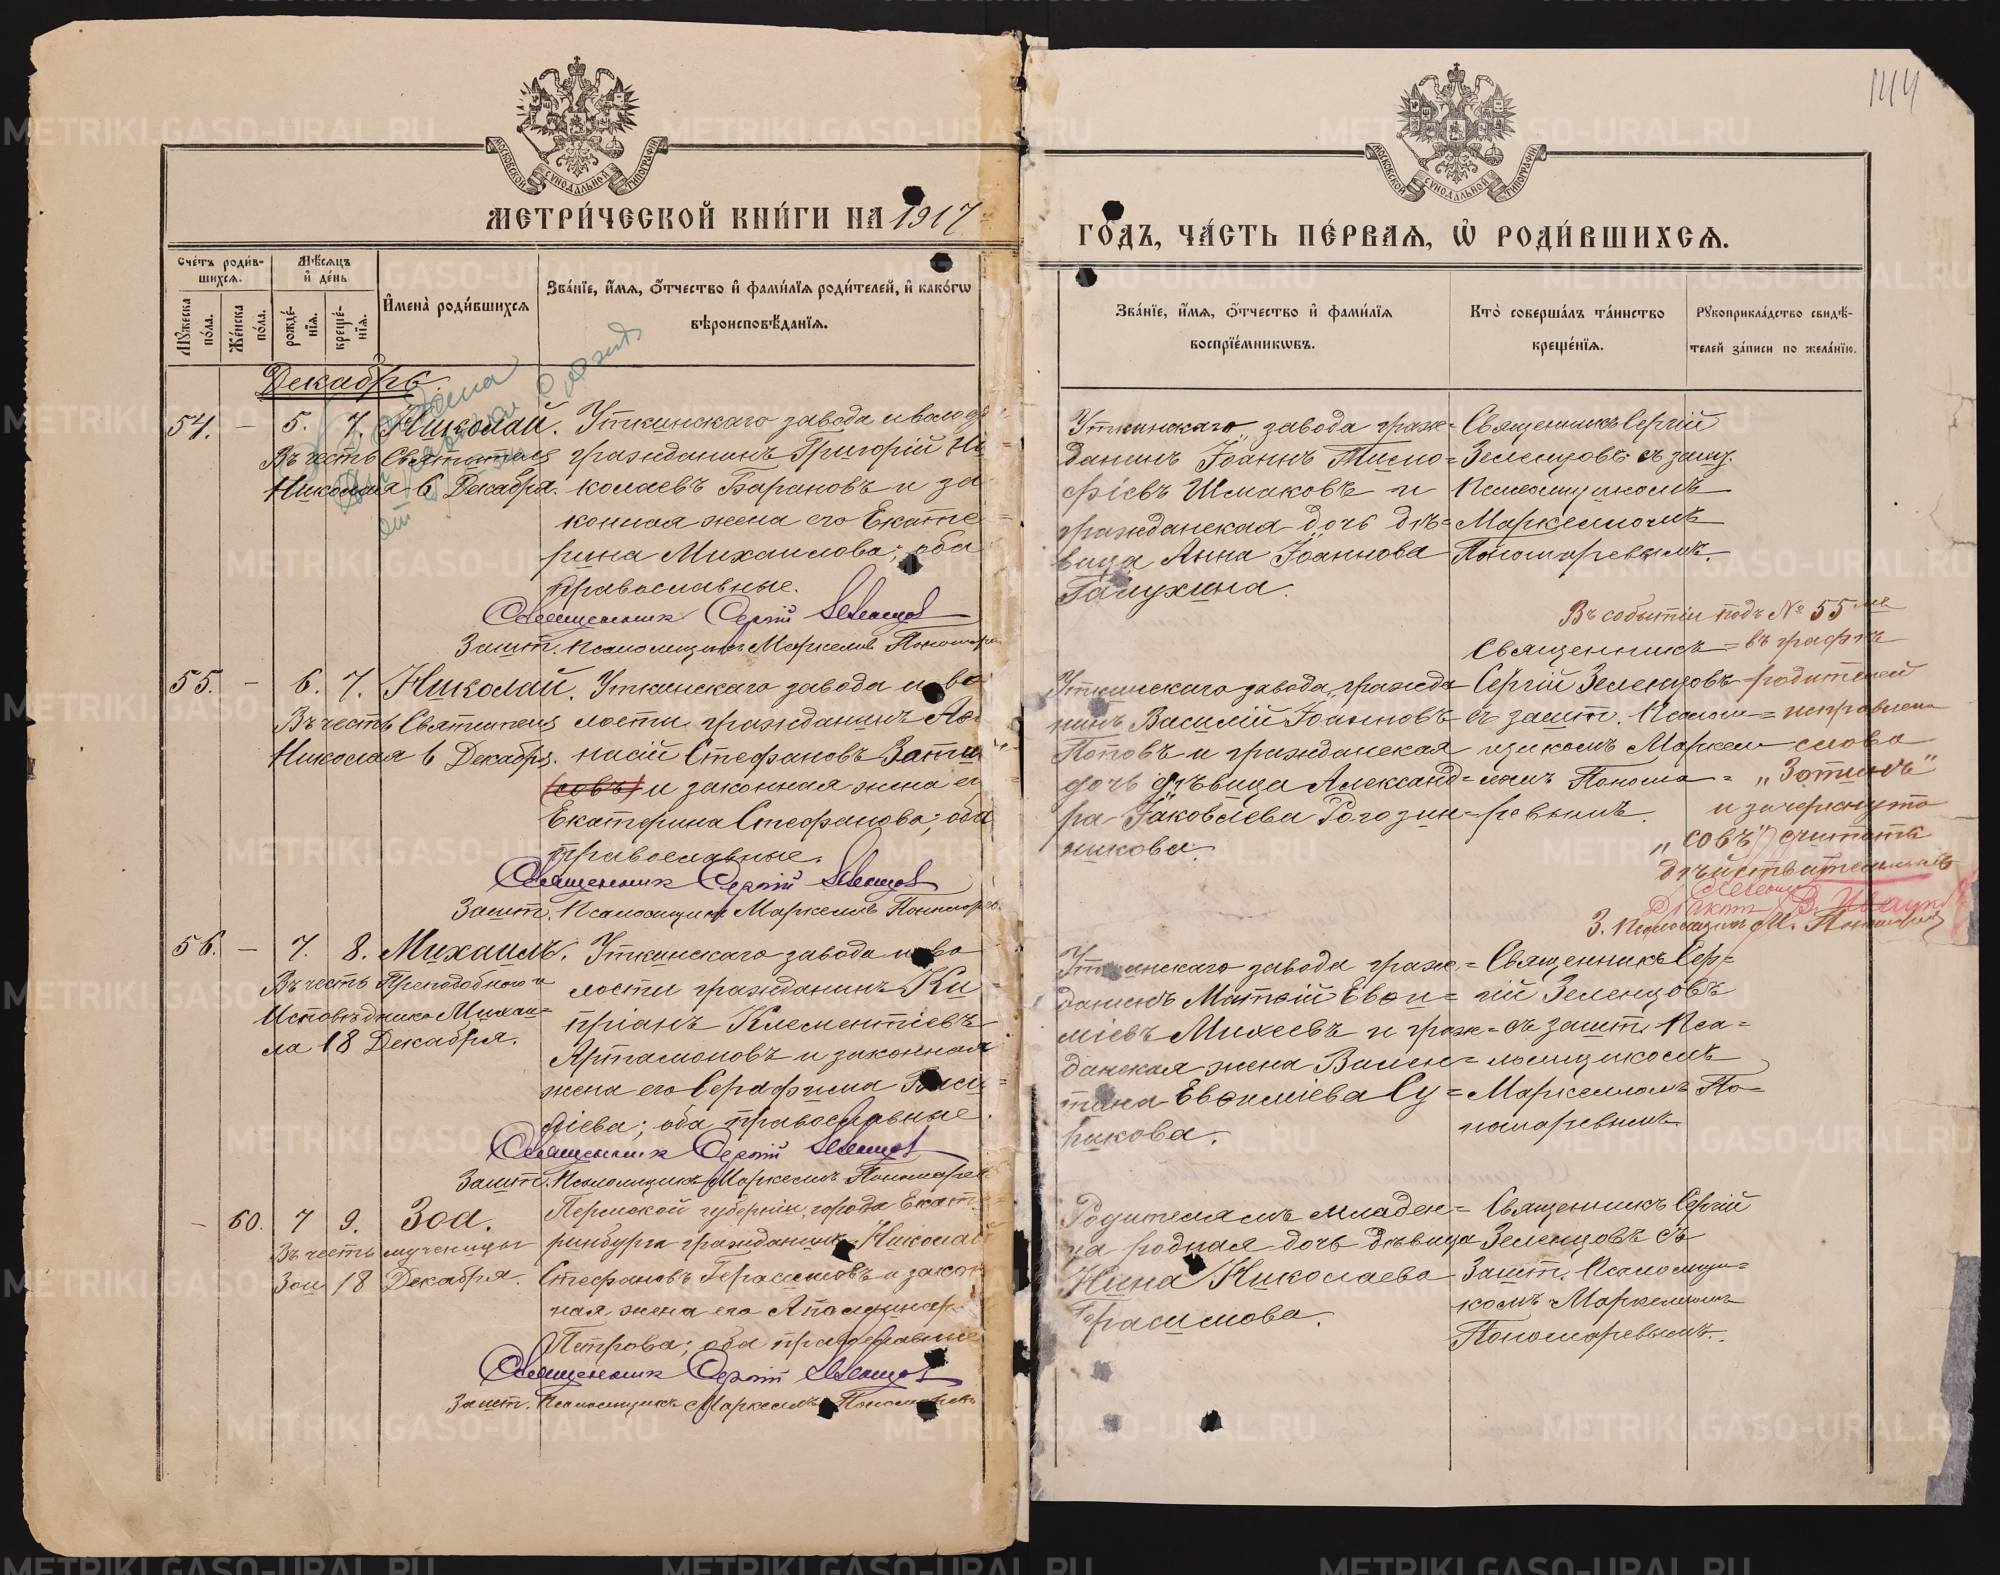 МЕТРИ́ЧЕСКОЙ КНИ́ГИ НА 1917
ГО́ДЪ, ЧА́СТЬ ПЕ́РВАЯ, Ѡ҆ РОДИ́ВШИХСЯ.
144
МОСКОВСКОЙ СУНОДАЛЬНОЙ ТИПОГРАФІИ
МОСКОВСКОЙ СУНОДАЛЬНОЙ ТИПОГРАФІИ
Сче́тъ роди́вшихся.
Мѣ́сяцъ и҆ де́нь
Мꙋ́жеска по́ла.
Же́нска по́ла.
рожде́нїя.
креще́нїя.
И҆мена̀ роди́вшихся
Зва́нїе, и҆́мя, ѻ҆́тчество и҆ фами́лїя роди́телей, и҆ како́гѡ
вѣроисповѣ́данїя.
Зва́нїе, и҆́мя, ѻ҆́тчество и҆ фами́лїя
воспрїе́мникѡвъ.
Кто̀ соверша́лъ та́инство
креще́нїя.
Рꙋкоприкла́дство свидѣ́-
телей за́писи по жела́нїю.
Декабрь.
54. - 5. 7. Николай.
Въ честь Святителя
Николая 6 Декабря.
Уткинскаго завода и волости
гражданинъ Григорій Ни
колаевъ Барановъ и за-
конная жена его Екате
рина Михаилова; оба
православные.
Священник Сергій Зеленцов
Зашт. Псаломщикъ Маркелъ Пономарев
Уткинскаго завода граж-
данинъ Іоаннъ Тимо-
фіевъ Шмаковъ и
гражданская дочь дѣ-
вица Анна Іоаннова
Галухина.
Священникъ Сергій
Зеленцовъ съ зашт.
Псаломщикомъ
Маркелломъ
Пономаревымъ.
55. - 6. 7. Николай.
Въ честь Святителя
Николая 6 Декабря.
Уткинскаго завода и во
лости гражданинъ Аѳа
насій Стефановъ Зоти
(совъ) и законная жена ег
Екатерина Стефанова; оба
православные.
Священник Сергій Зеленцов
Зашт. Псаломщикъ Маркелъ Пономарев
Уткинскаго завода гражда
нинъ Василій Іоанновъ
Поповъ и гражданская
дочь дѣвица Александ-
ра Іаковлева Рогозин-
никова.
Священникъ
Сергій Зеленцовъ
съ зашт. Псалом-
щикомъ Маркел-
ломъ Понома-
ревымъ.
Въ событіи подъ № 55мъ
въ графѣ
родителей
исправлено
слово
"Зотинъ"
и зачеркнуто
"совъ" считать
дѣйствительнымъ
З. Псаломщикъ М. Пономарев
56. - 7. 8. Михаилъ.
Въ честь Преподобного и
Исповѣдника Михаи-
ла 18 Декабря.
Уткинскаго завода и во
лости гражданинъ Ки-
пріанъ Клементіевъ
Артамоновъ и законная
жена его Серафима Васи-
ліева; оба православные.
Священник Сергій Зеленцов
Зашт. Псаломщикъ Маркелъ Пономарев
Уткинскаго завода граж-
данинъ Матѳій Евѳи-
міевъ Михеевъ и граж-
данская жена Вален-
тина Евѳиміева Су-
рикова.
Священникъ Сер-
гій Зеленцовъ
съ зашт. Пса-
ломщикомъ
Маркелломъ По-
номаревымъ
- 60. 7 9. Зоя.
Въ честь мученицы
Зои 18 Декабря.
Пермской губерніи, города Екате-
ринбурга гражданинъ Николай
Стефановъ Герасимовъ и закон
ная жена его Аполлинар
Петрова; оба православные
Священник Сергій Зеленцов
Зашт. Псаломщикъ Маркелъ Пономаревъ
Родителямъ младен-
ца родная дочь дѣвица
Нина Николаева
Герасимова.
Священникъ Сергій
Зеленцовъ съ
Зашт. Псаломщи-
комъ Маркелломъ
Пономаревымъ.
METRIKI.GASO-URAL.RU